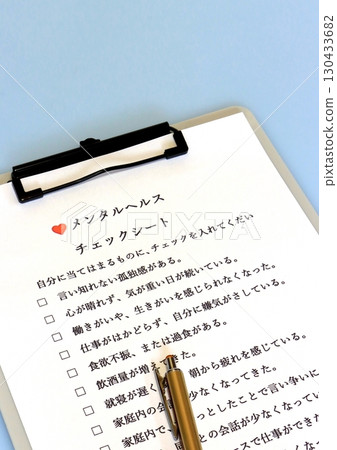 メンタルヘルス
チェックシート
自分に当てはまるものに、チェックを入れてくだい
言い知れない孤独感がある。
心が晴れず、気が重い日が続いている。
働きがいや、生きがいを感じられなくなった。
仕事がはかどらず、自分に嫌気がさしている。
食欲不振、または過食がある。
飲酒量が増えてた。
就寝が遅く 朝から疲れを感じている。
家庭内の会 少なくなってきた。
家庭内で っとしたことで言い争いに
との会話が少なくなってい
ースで仕事ができた
PIXTA
pixta.jp - 130433682